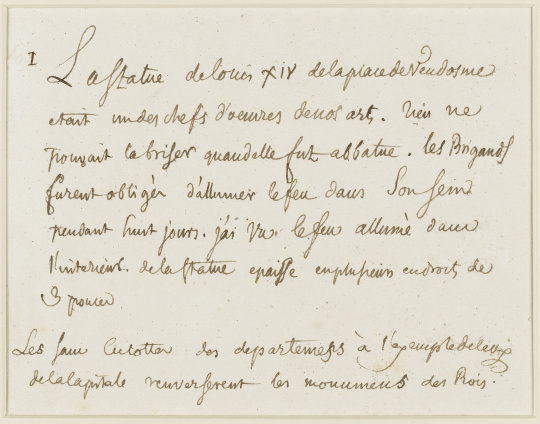 1
La statue de louis XIV de la place de Vendosme
etait un des chefs d'oeuvres de nos art,. Rien ne
pouvait la briser quand elle fut abbatue. les Brigands
furent obligér d'allumer le feu dans son sein
pendant huit jours. j'ai vu le feu allumé dans
l'interieur. de la statue epaisse en plusieurs endroits de
3 pouces
Les sans Culottes des departements à l'exemple de ceux
de la Capitale renverserent les monumens des Rois.